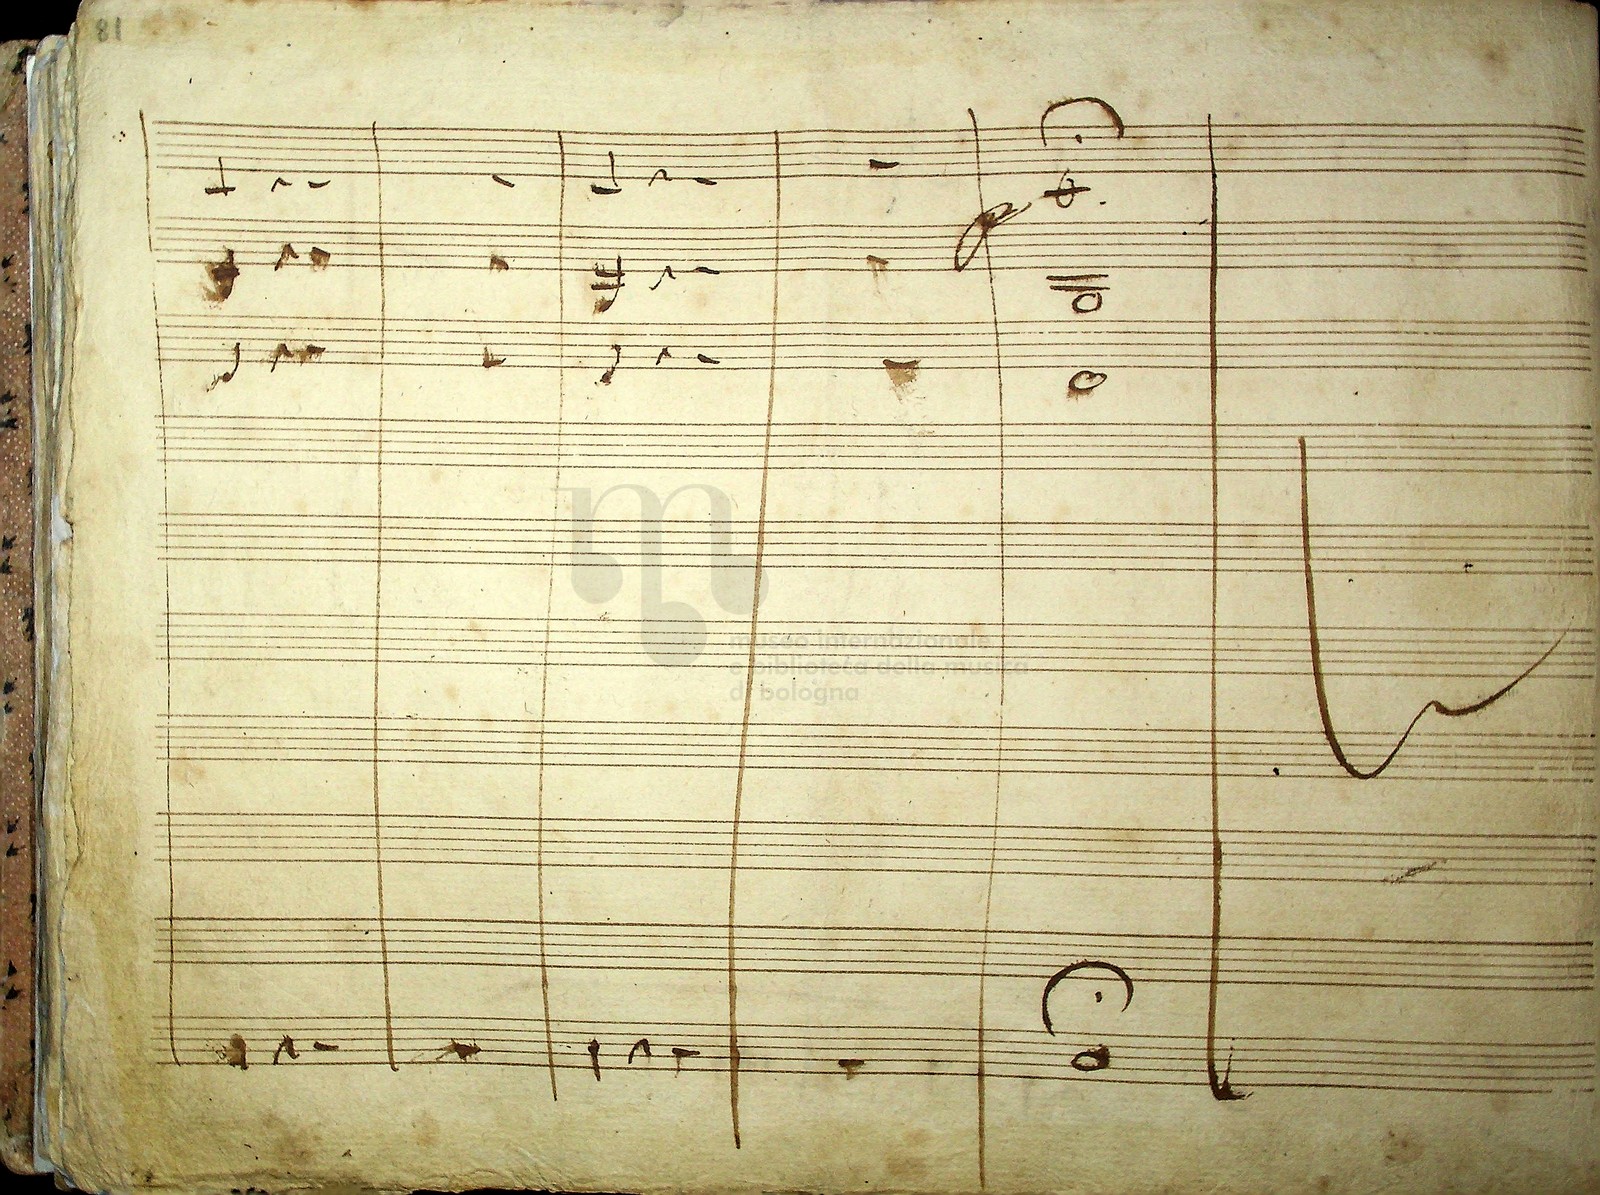 81
museo internazionale
e biblioteca della musica
di bologna